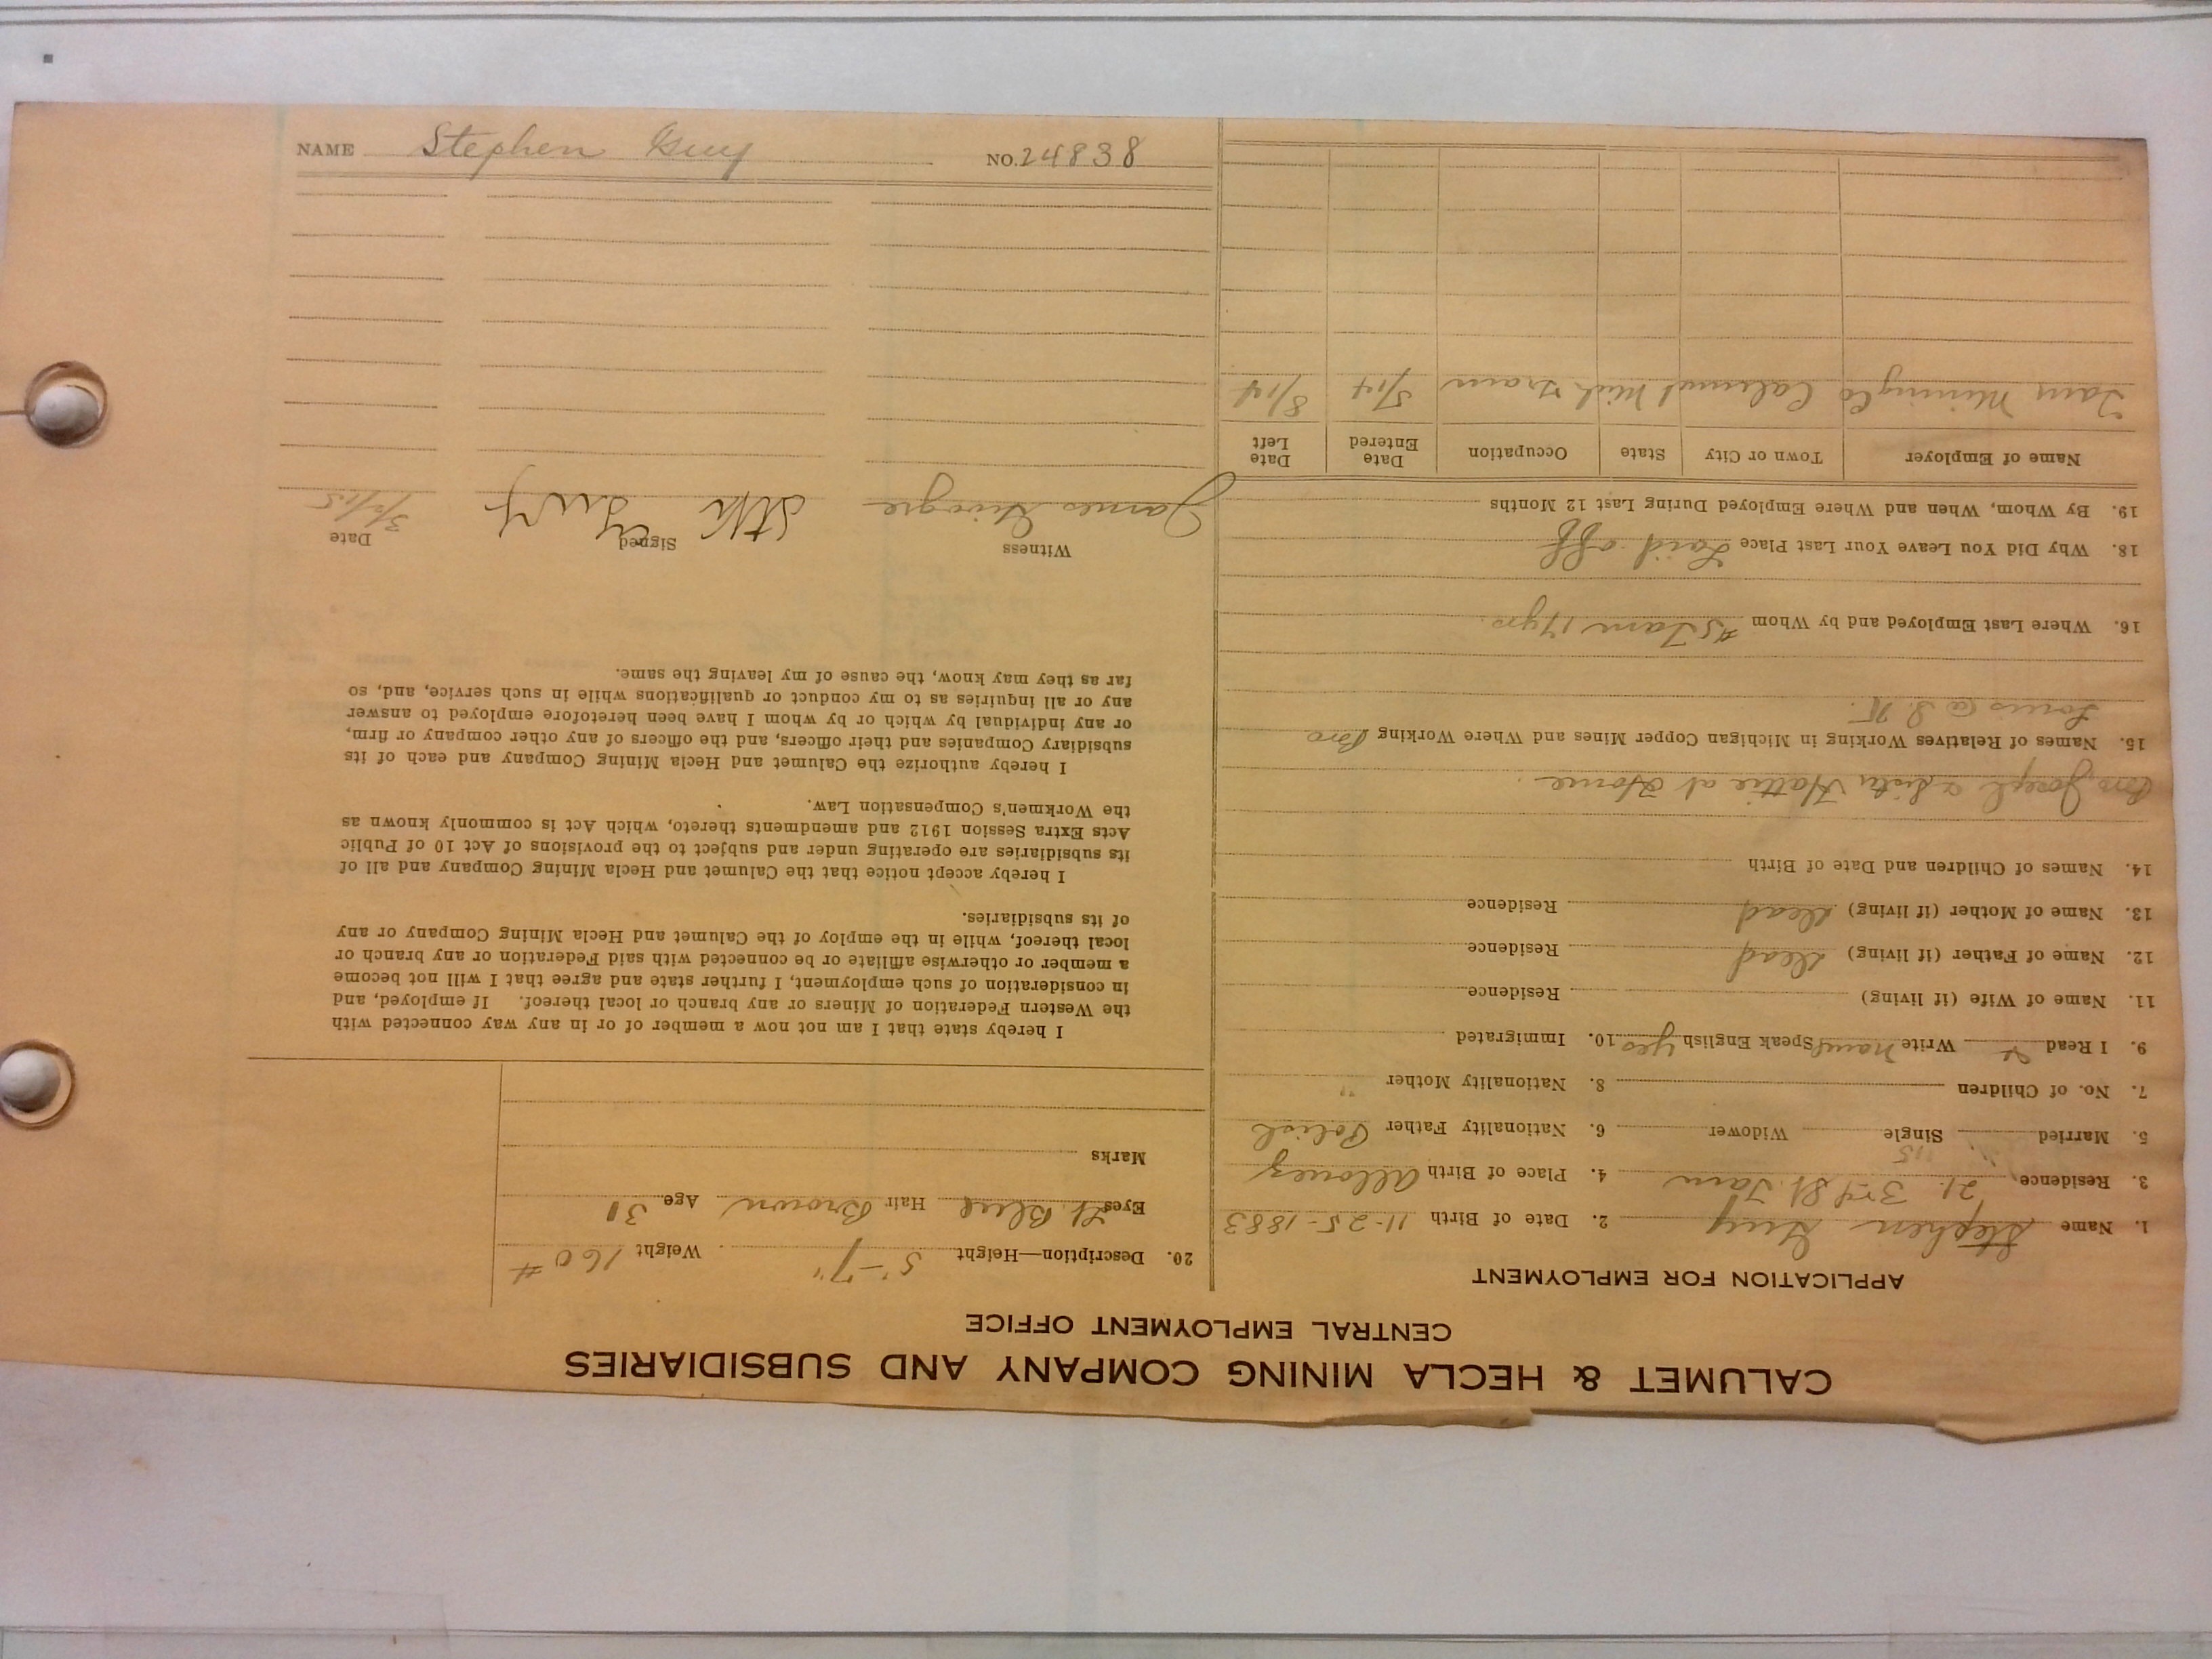 CALUMET & HECLA MINING COMPANY AND SUBSIDIARIES
CENTRAL EMPLOYMENT OFFICE
APPLICATION FOR EMPLOYMENT
1. Name Stephen Guy 2. Date of Birth 11-25-1883
3. Residence 21 3rd St. Tam 4. Place of Birth Allouez
5. Married Single Widower 6. Nationality Father Polish
7. No. of Children 8. Nationality Mother "
9. I Read Write name Speak English yes 10. Immigrated
11. Name of Wife (if living) Residence
12. Name of Father (if living) Dead Residence
13. Name of Mother (if living) Dead Residence
14. Names of Children and Date of Birth
Bro Joseph & Sister Hattie at Home.
15. Names of Relatives Working in Michigan Copper Mines and Where Working Bro
Louis @
16. Where Last Employed and by Whom #5 Tam 14 yrs.
18. Why Did You Leave Your Last Place Laid off
19. By Whom, When and Where Employed During Last 12 Months
Name of Employer Town or City State Occupation Date Entered Date Left
Tam Mining Co Calumet Mich Tram 5/14 8/14
20. Description—Height 5'-7" Weight 160 #
Eyes Lt. Blue Hair Brown Age 31
Marks
I hereby state that I am not now a member of or in any way connected with
the Western Federation of Miners or any branch or local thereof. If employed, and
in consideration of such employment, I further state and agree that I will not become
a member or otherwise affiliate or be connected with said Federation or any branch or
local thereof, while in the employ of the Calumet and Hecla Mining Company or any
of its subsidiaries.
I hereby accept notice that the Calumet and Hecla Mining Company and all of
its subsidiaries are operating under and subject to the provisions of Act 10 of Public
Acts Extra Session 1912 and amendments thereto, which Act is commonly known as
the Workmen's Compensation Law.
I hereby authorize the Calumet and Hecla Mining Company and each of its
subsidiary Companies and their officers, and the officers of any other company or firm,
or any individual by which or by whom I have been heretofore employed to answer
any or all inquiries as to my conduct or qualifications while in such service, and, so
far as they may know, the cause of my leaving the same.
Witness Signed Date
James Guy 3/2/15
NAME Stephen Guy NO. 24838